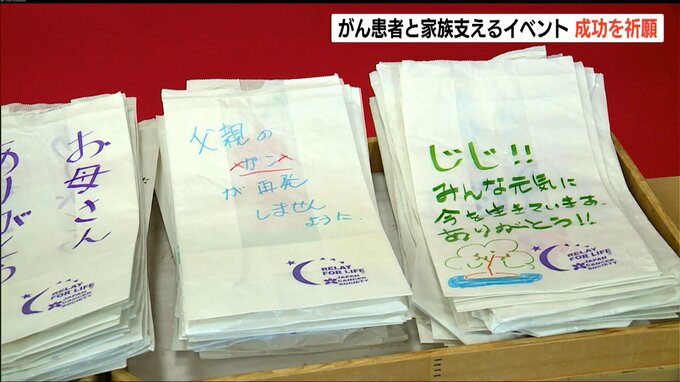 がん患者と家族支えるイベント 成功を祈願
お母さん
ありがとう
父親の
ガン
が再発
しません
ように
RELAY
FOR LIFE
JAPAN
CANCER
SOCIETY
じじ!!
みんな元気に
今を生きています。
ありがとう!!
RELAY
FOR LIFE
JAPAN
CANCER
SOCIETY
RELAY
FOR LIFE
JAPAN
CANCER
SOCIETY